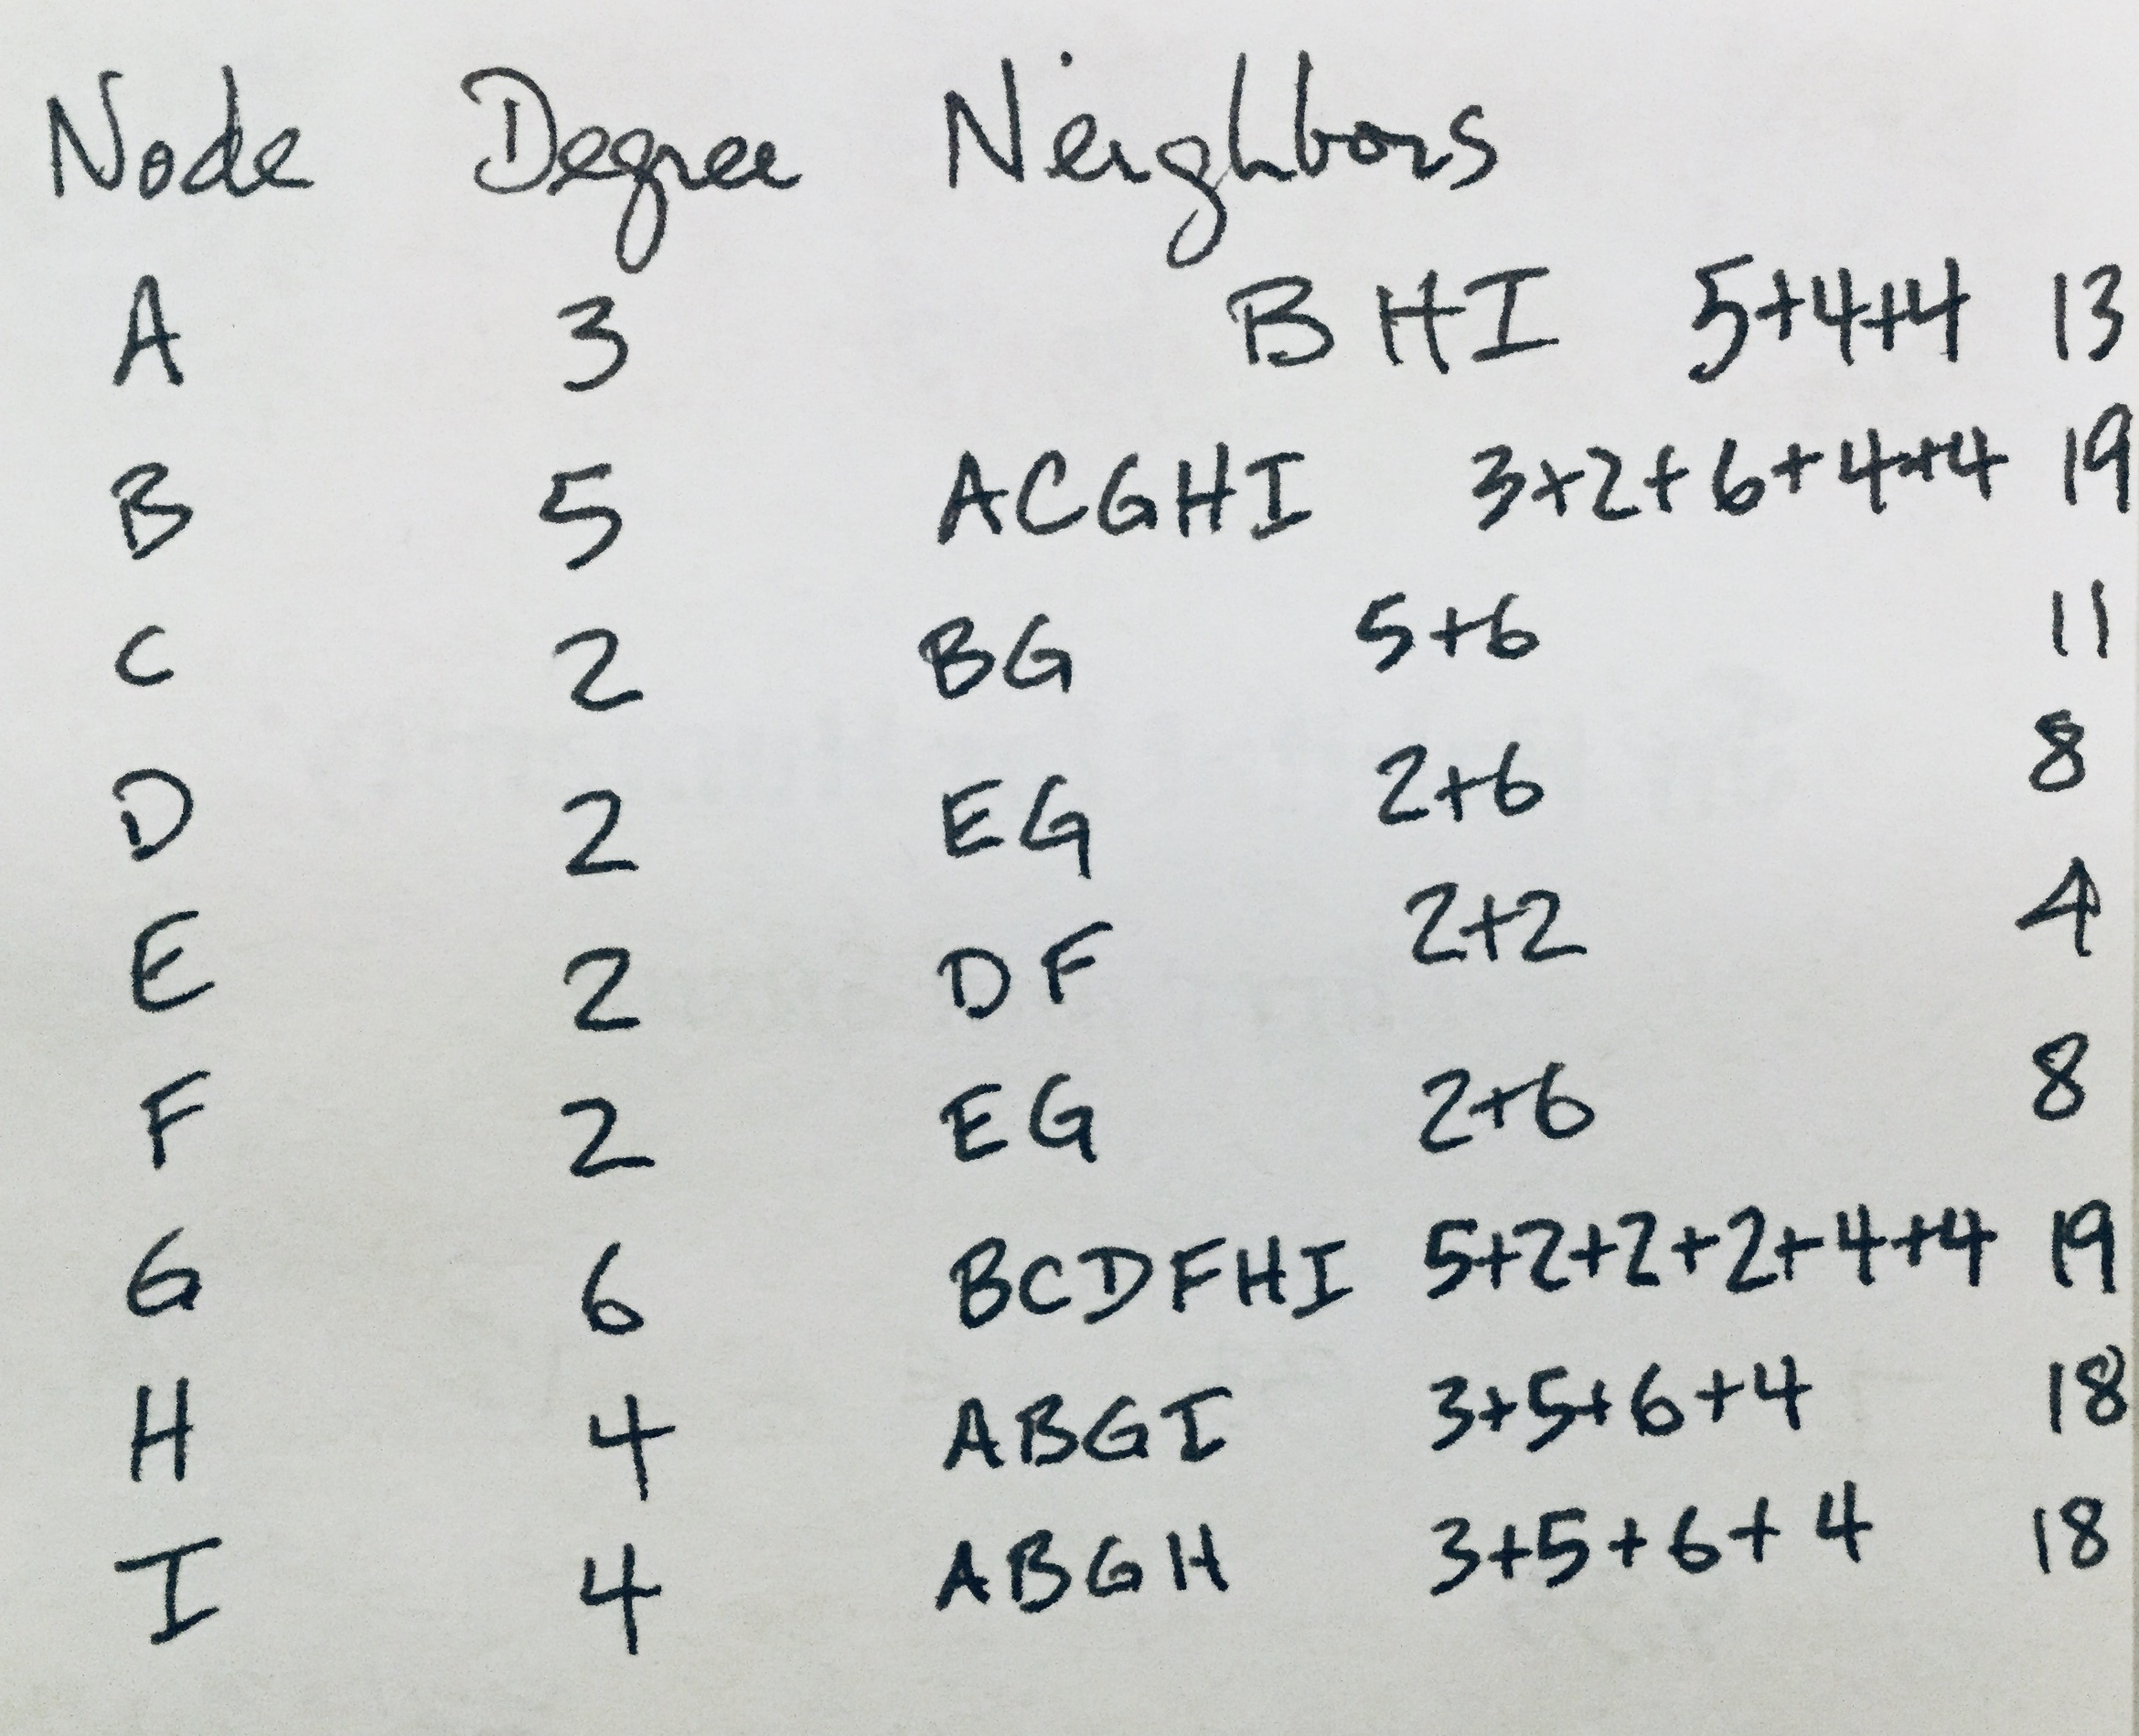 Node Degree Neighbors
A 3 B H I 5+4+4 13
B 5 ACGHI 3+2+6+4+4 19
C 2 BG 5+6 11
D 2 EG 2+6 8
E 2 DF 2+2 4
F 2 EG 2+6 8
G 6 BCDFHI 5+2+2+2+4+4 19
H 4 ABGI 3+5+6+4 18
I 4 ABGH 3+5+6+4 18